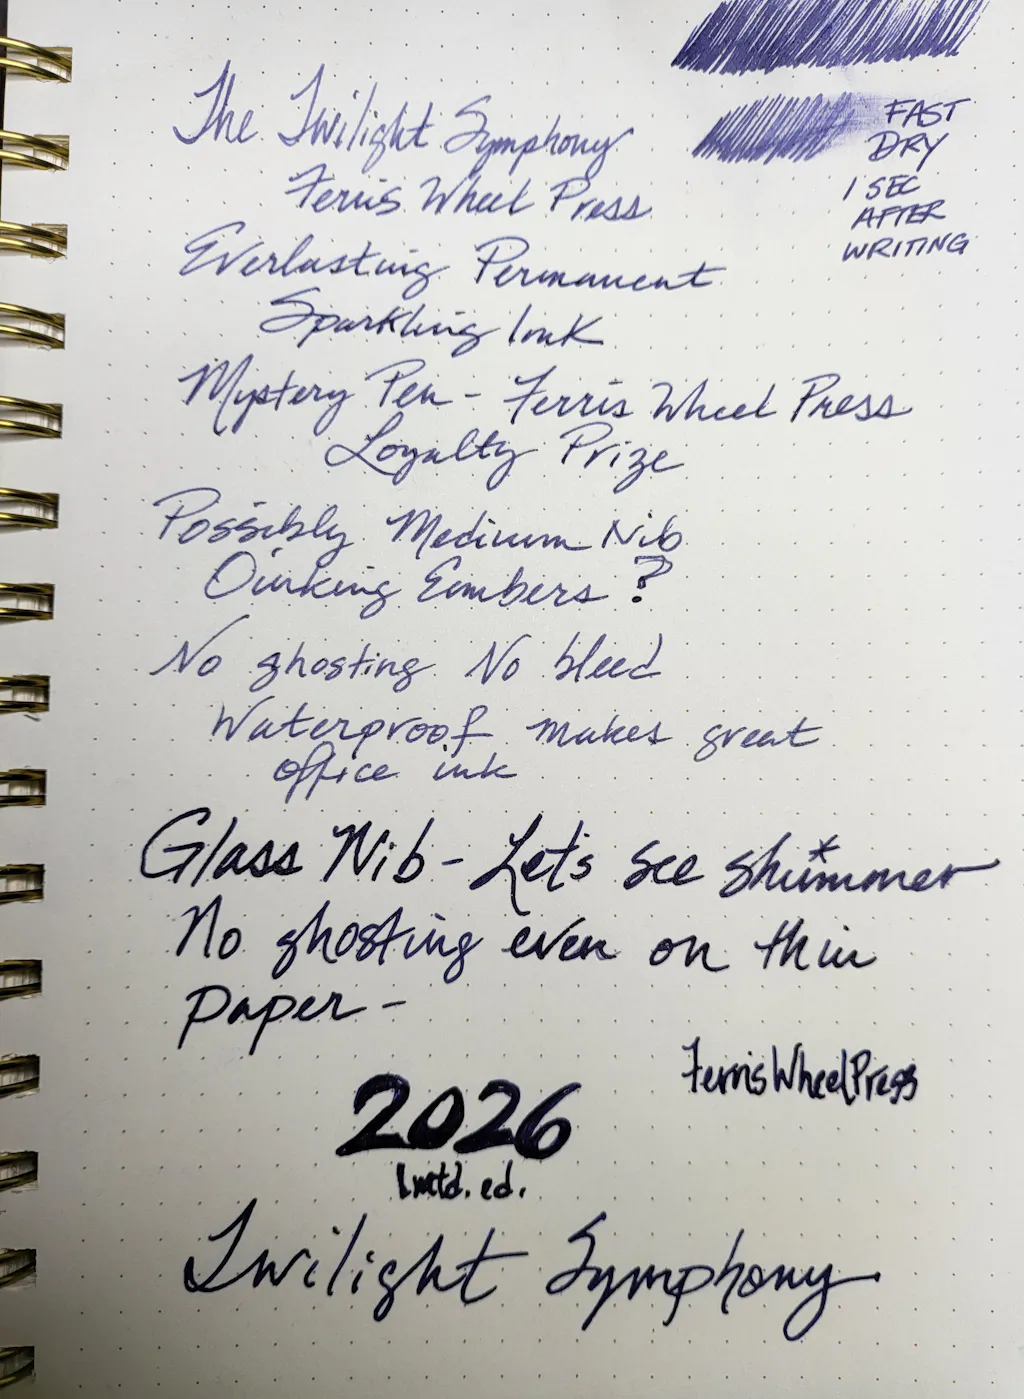 The Twilight Symphony
Ferris Wheel Press
FAST
DRY
1 SEC
AFTER
WRITING
Everlasting Permanent
Sparkling Ink
Mystery Pen - Ferris Wheel Press
Loyalty Prize
Possibly Medium Nib
Oinking Embers?
No ghosting No bleed
Waterproof makes great
office ink
Glass Nib - Let's see shimmer
No ghosting even on thin
paper -
FerrisWheelPress
2026
lmtd. ed.
Twilight Symphony